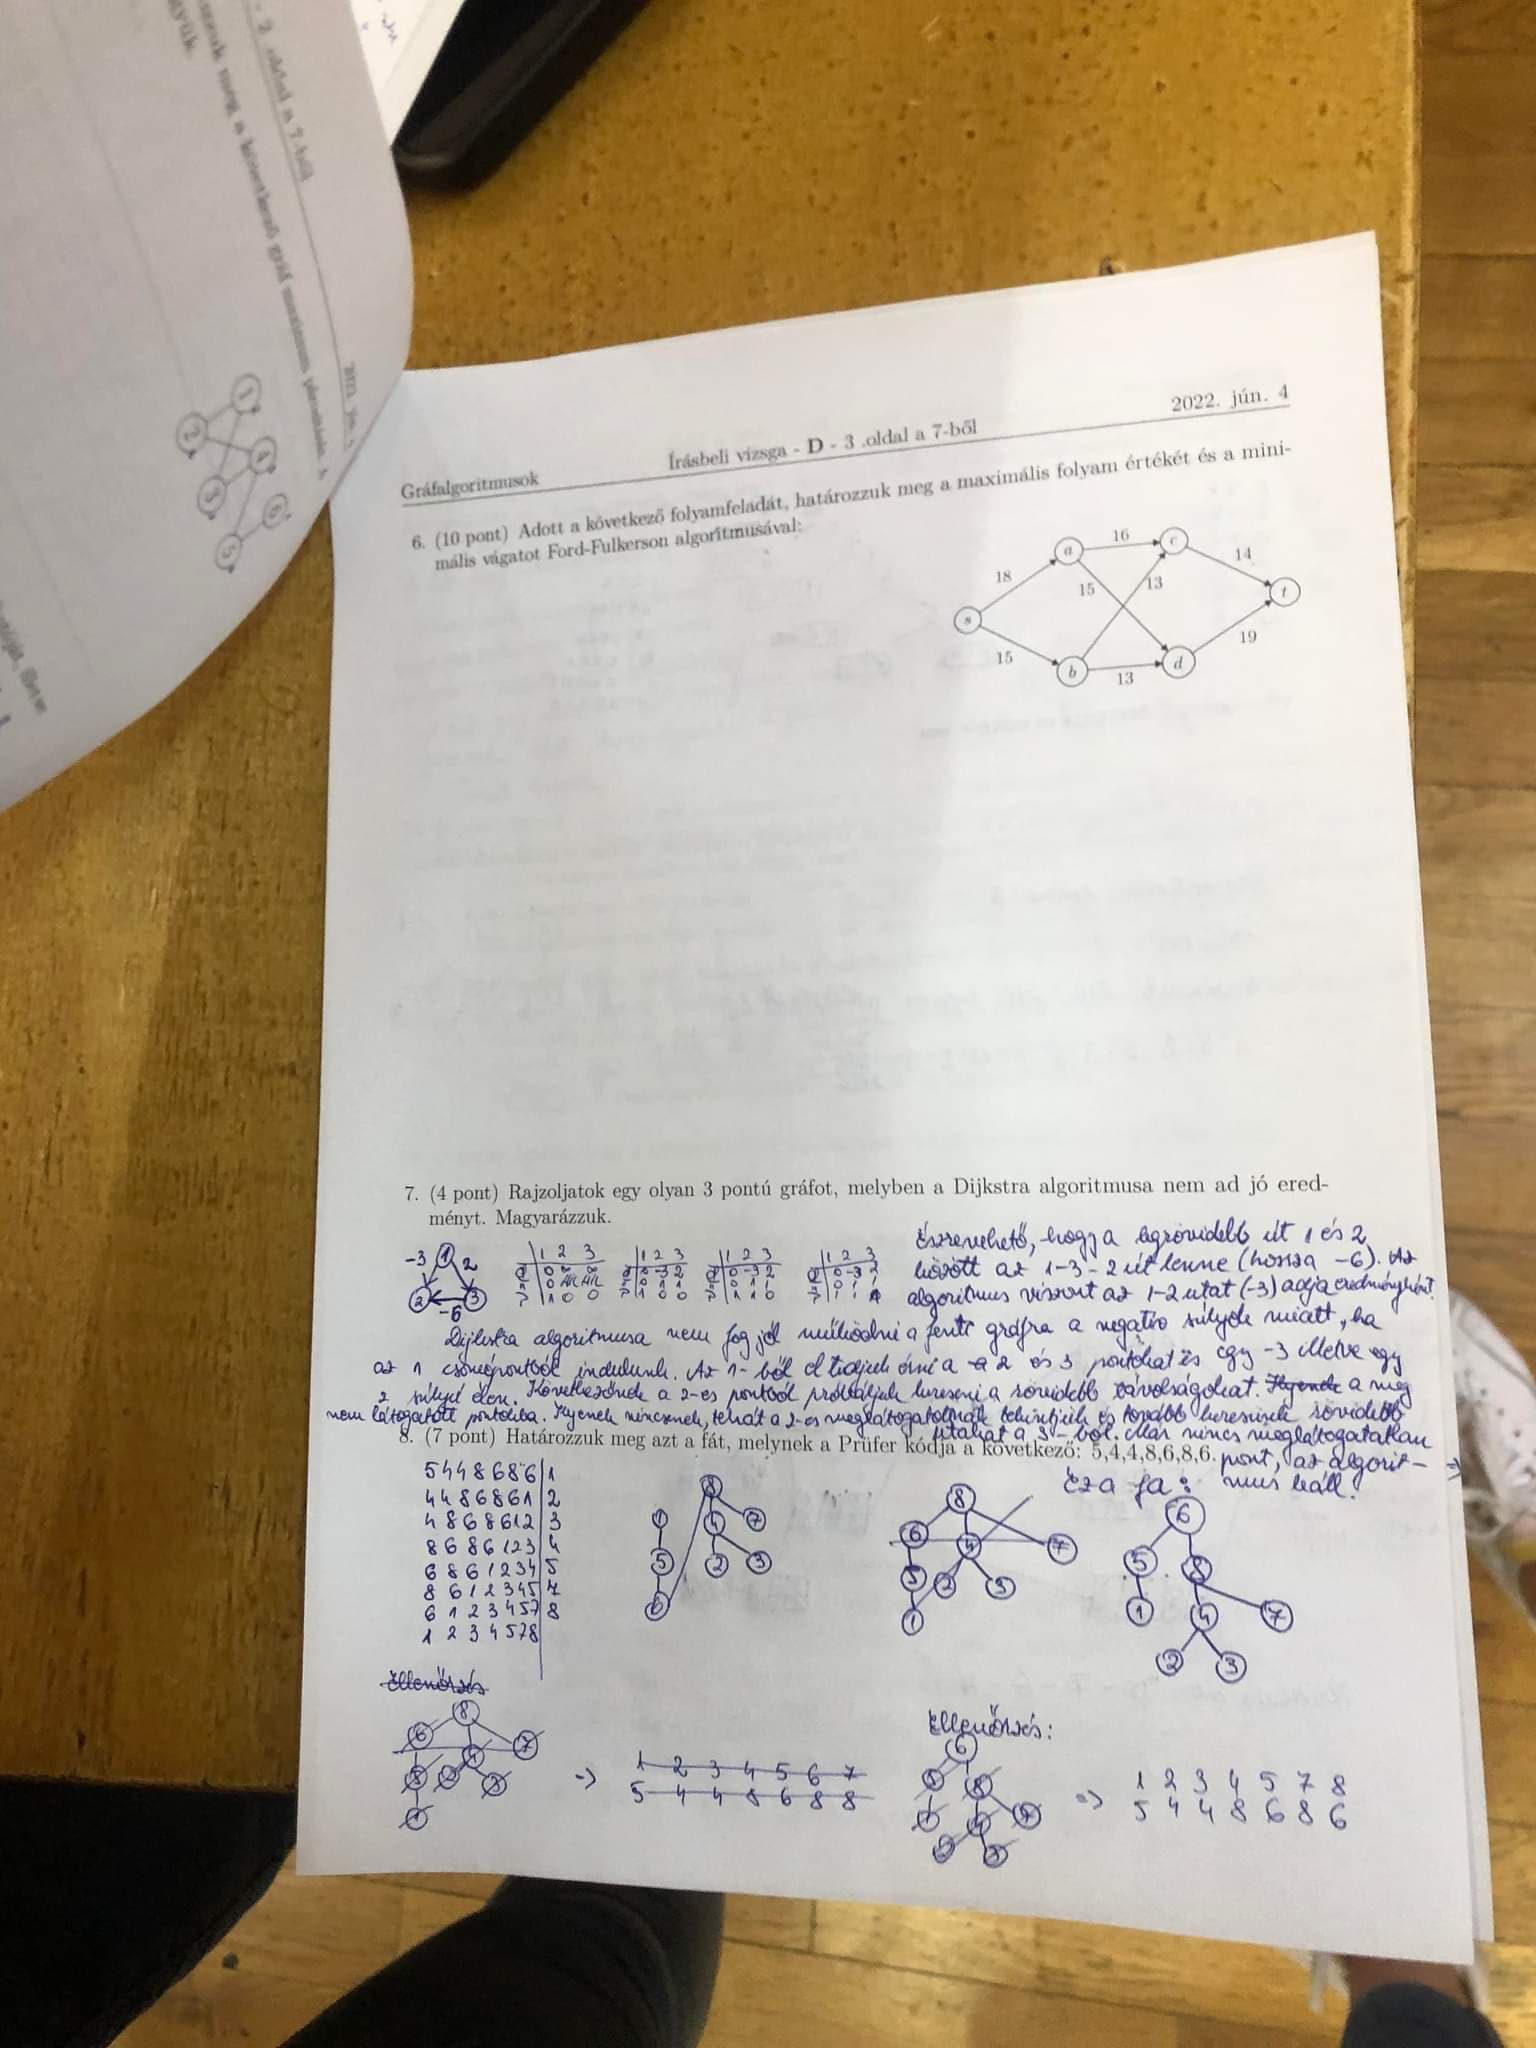 - 2. oldal a 7-ből
1
2
4
3
6
5
Gráfalgoritmusok
Írásbeli vizsga - D - 3 .oldal a 7-ből
2022. jún. 4
6. (10 pont) Adott a következő folyamfeladat, határozzuk meg a maximális folyam értékét és a mini-
mális vágatot Ford-Fulkerson algoritmusával:
a 16 c
18 14
15 13
s t
15 19
b 13 d
7. (4 pont) Rajzoljatok egy olyan 3 pontú gráfot, melyben a Dijkstra algoritmusa nem ad jó ered-
ményt. Magyarázzuk.
-3 1 2
2 3
-6
1 2 3
1 2 3
0 -3 2
1 0 0
1 2 3
0 -3 2
1 1 0
1 2 3
0 -3 2
Észrevehető, hogy a legrövidebb út 1 és 2
között az 1-3-2 út lenne (hossza -6). Az
algoritmus viszont az 1-2 utat (-3) adja eredményként.
Dijkstra algoritmusa nem fog jól működni a fenti gráfra a negatív súlyok miatt, ha
az 1 csomópontból indulunk. Az 1-ből el tudjuk érni a 2 és 3 pontokat és egy -3 illetve egy
2 súlyú élen. Következőnek a 2-es pontból próbáljuk keresni a rövidebb távolságokat. Ilyenek a még
nem látogatott pontokba. Ilyenek nincsenek, tehát a 2-es meglátogatottnak tekintjük és tovább keresünk rövidebb
utakat a 3-ból. Már nincs meglátogatatlan
8. (7 pont) Határozzuk meg azt a fát, melynek a Prüfer kódja a következő: 5,4,4,8,6,8,6.
pont, az algorit-
mus leáll.
5 4 4 8 6 8 6 | 1
4 4 8 6 8 6 1 | 2
4 8 6 8 6 1 2 | 3
8 6 8 6 1 2 3 | 4
6 8 6 1 2 3 4 | 5
8 6 1 2 3 4 5 | 7
6 1 2 3 4 5 7 | 8
1 2 3 4 5 7 8
8
1 4 7
5 2 3
6
8
6 4 7
5 2 3
1
Ez a fa:
6
5 8
1 4 7
2 3
Ellenőrzés
8
6 4 7
5 2 3
1
=> 1 2 3 4 5 6 7
5 4 4 8 6 8 8
Ellenőrzés:
6
5 8
1 4 7
2 3
=> 1 2 3 4 5 7 8
5 4 4 8 6 8 6